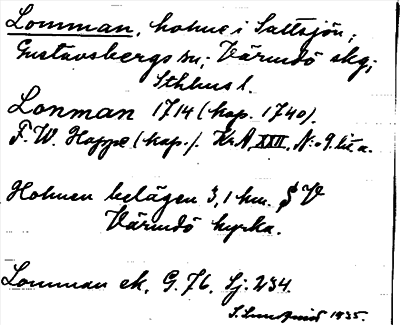 Lomman, holme i Saltsjön;
Gustavsbergs sn; Värmdö skg;
Sthlms l.
Lonman 1714 (kop. 1740).
F. W. Hoppe (kop.). Kr A, XXII, N:o 9. lit a.
Holmen belägen 3,1 km. S V
Värmdö kyrka.
Lomman ek. G. 76. Sj. 234.
S. Lundqvist 1935.